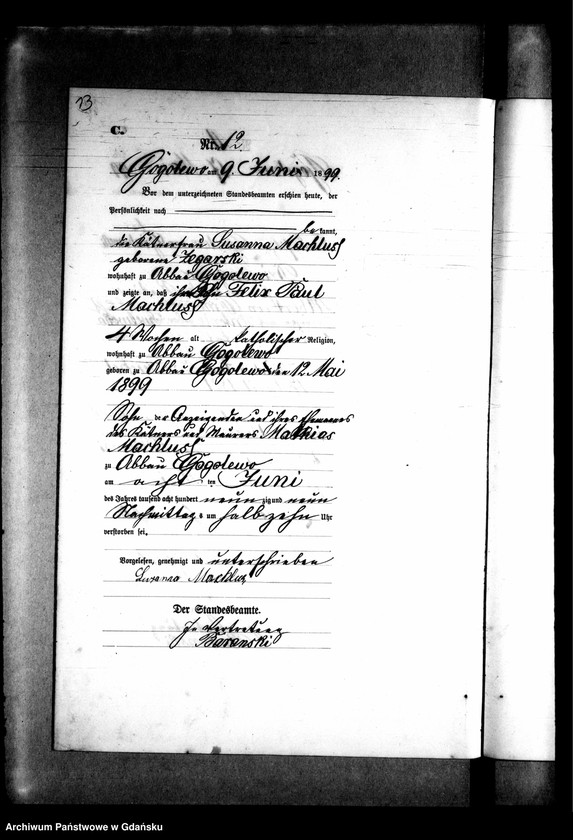 13
C.
Nr. 12.
Gogolewo am 9. Juni 1899.
Vor dem unterzeichneten Standesbeamten erschien heute, der
Persönlichkeit nach
be kannt,
die Kätnerfrau Susanna Machluß
geborene Zegarski
wohnhaft zu Abbau Gogolewo
und zeigte an, daß ihr Sohn Felix Paul
Machluß
4 Wochen alt katholischer Religion,
wohnhaft zu Abbau Gogolewo
geboren zu Abbau Gogolewo den 12 Mai
1899
Sohn der Anzeigenden und ihres Ehemannes
des Kätners und Maurers Mathias
Machluß
zu Abbau Gogolewo
am acht ten Juni
des Jahres tausend acht hundert neun zig und neun
Nachmittags um halb zehn Uhr
verstorben sei.
Vorgelesen, genehmigt und unterschrieben
Susanna Machlus
Der Standesbeamte.
In Vertretung
Baranski
Archiwum Państwowe w Gdańsku